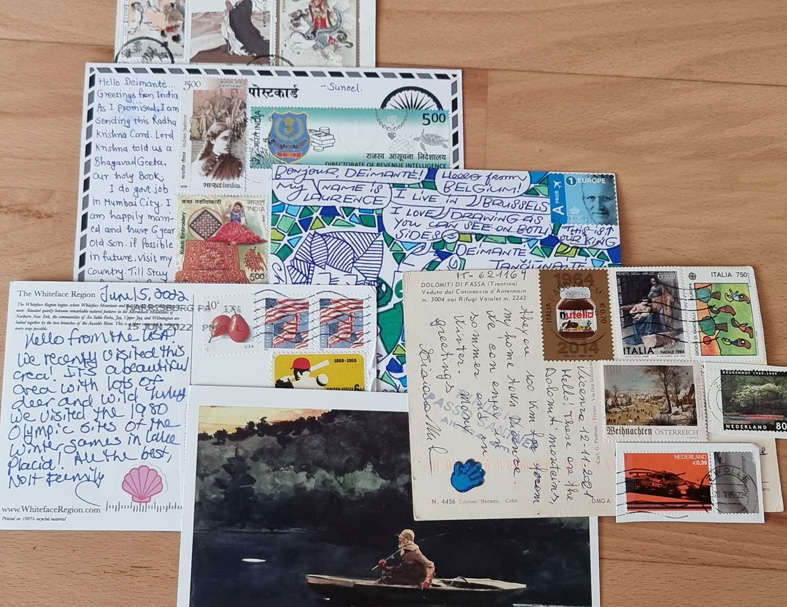 Hello Deimante...
Greetings from India
As I promised, I am
sending this Radha
Krishna Card. Lord
Krishna told us a
Bhagavad Geeta,
Our holy Book.
I do govt job
in Mumbai City. I
am happily marri-
ed and have 6 year
old son. if possible
in future, visit my
Country. Till Stay
पोस्टकार्ड
-Suneel.
500
भारत INDIA
5.00
राजस्व आसूचना निदेशालय
DIRECTORATE OF REVENUE INTELLIGENCE
भारत INDIA
5.00
BONJOUR, DEIMANTÉ!
HELLO FROM
BELGIUM!
MY NAME IS
LAURENCE
I LIVE IN BRUSSELS
I LOVE DRAWING AS
YOU CAN SEE ON BOTH
SIDES
DEIMANTE
A PRIOR
1 EUROPE
THIS IS
OUR KING
The Whiteface Region
June 15, 2022
Hello from the USA!
We recently visited this
area! It's a beautiful
area with lots of
deer and wild turkey
We visited the 1980
Olympic sites of the
winter games in Lake
Placid! All the best,
www.WhitefaceRegion.com
Printed on 100% recycled material
10c
USA
15 JUN 2022 PM
1869-1969
IT-621169
DOLOMITI DI FASSA (Trentino)
Veduta del Catinaccio d'Antermoia
m. 3004 coi Rifugi Vaiolet m. 2243
Vicenza 12-11-2021
Hello! These are the
Dolomiti mountains,
they're 200 km far from
my home town Vicenza.
We can enjoy in
summer and in
Winter.
Greetings
N. 4456
DMGA
nutella
2014
ITALIA
ITALIA 750
Weihnachten ÖSTERREICH
NEDERLAND 80
NEDERLAND
€0,39